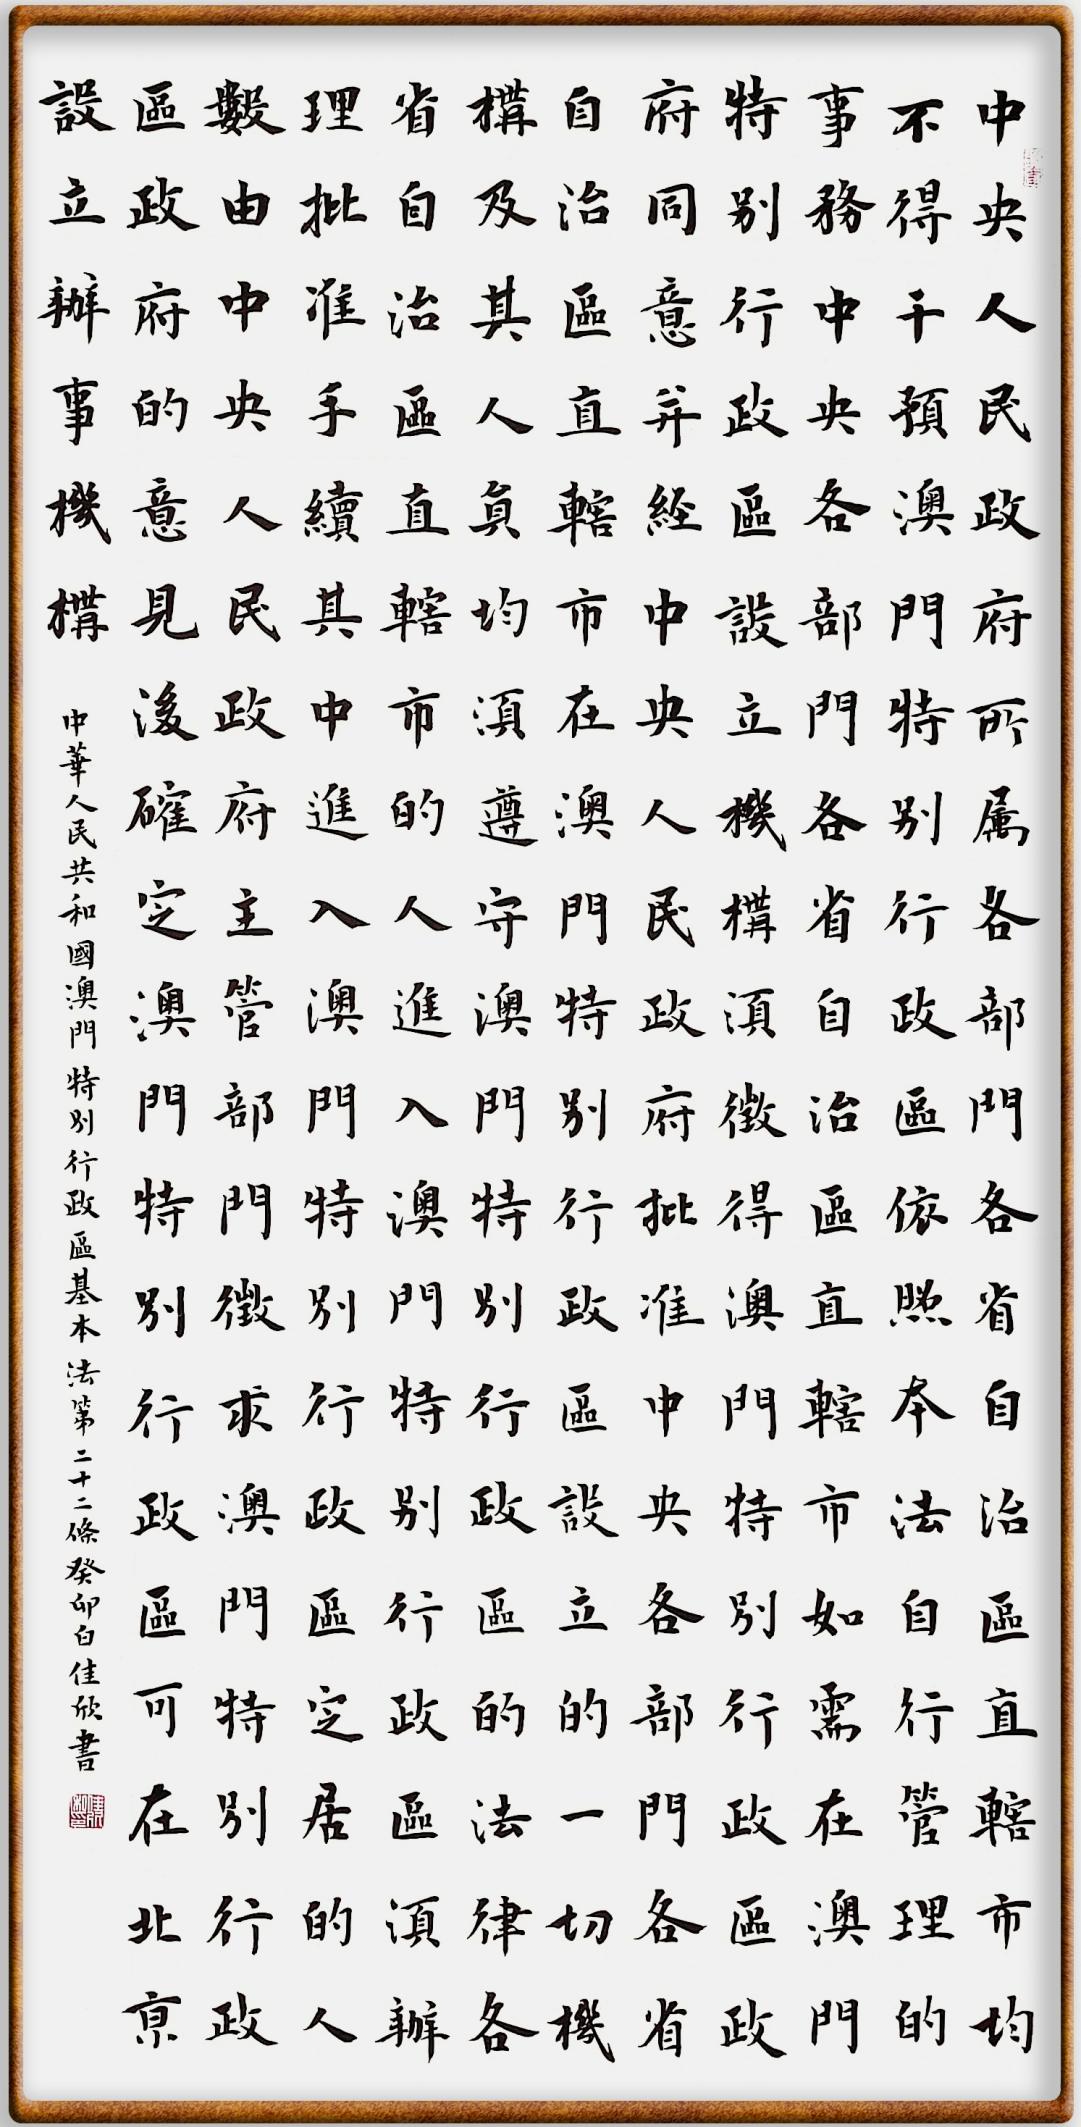 中央人民政府所属各部門各省自治區直轄市均
不得干預澳門特别行政區依照本法自行管理的
事務中央各部門各省自治區直轄市如需在澳門
特别行政區設立機構須徵得澳門特别行政區政
府同意并經中央人民政府批准中央各部門各省
自治區直轄市在澳門特别行政區設立的一切機
構及其人員均須遵守澳門特别行政區的法律各
省自治區直轄市的人進入澳門特别行政區須辦
理批准手續其中進入澳門特别行政區定居的人
數由中央人民政府主管部門徵求澳門特别行政
區政府的意見後確定澳門特别行政區可在北京
設立辦事機構
中華人民共和國澳門特别行政區基本法第二十二條癸卯白佳欣書